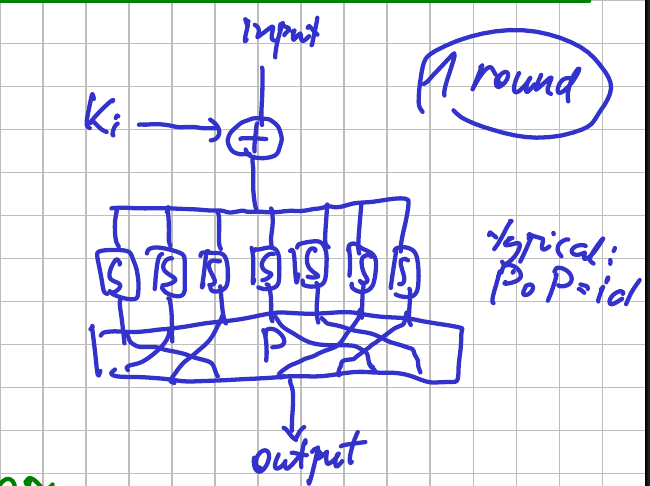 Input
1 round
Ki
+
S S S S S S S
typical:
P∘P=id
P
output